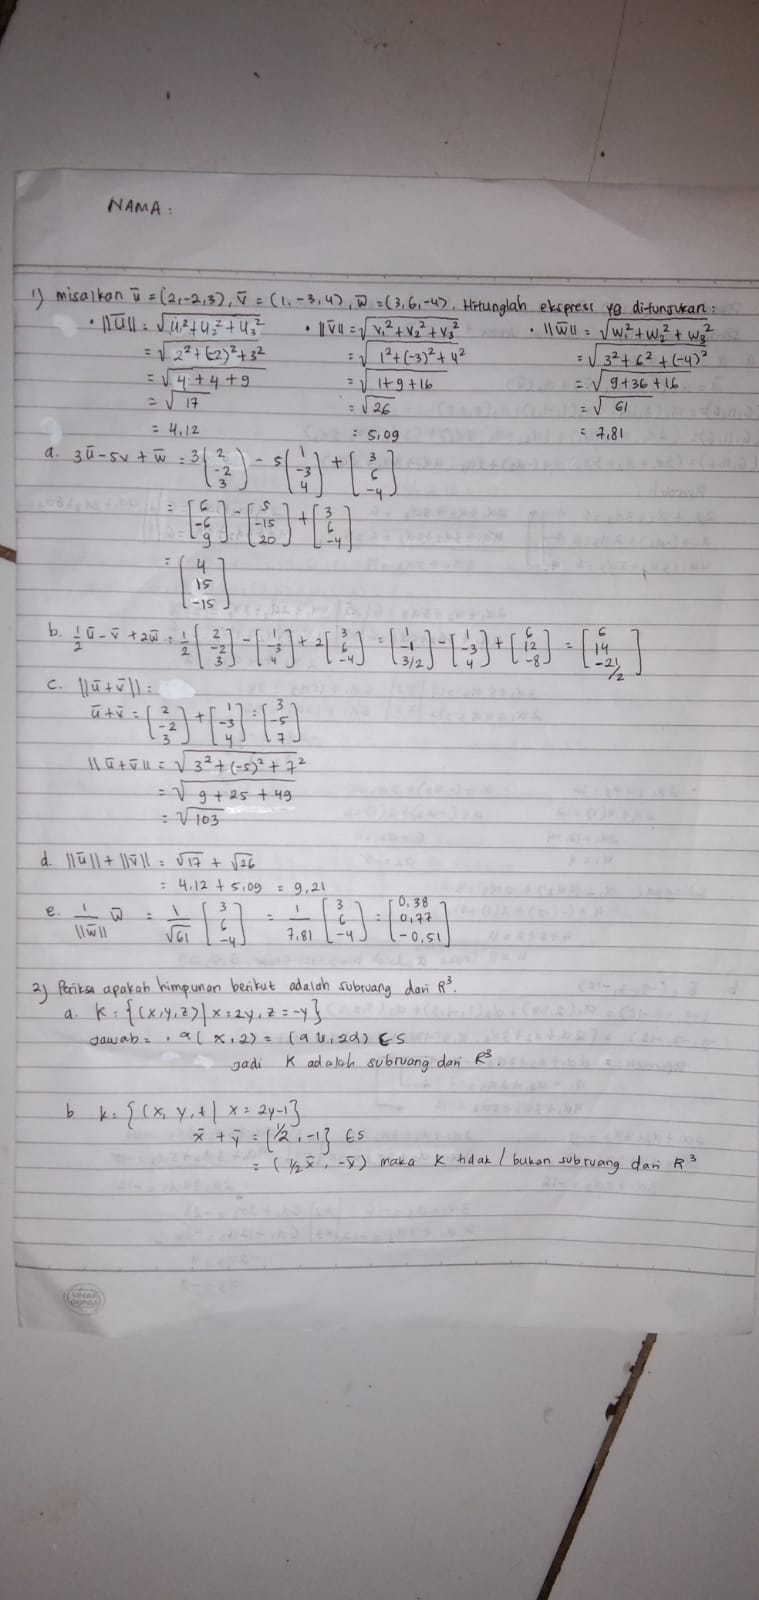 NAMA :
1) misalkan ū = (2,-2,3), v̄ = (1,-3,4), w̄ = (3,6,-4). Hitunglah ekspresi yg ditunjukan :
• ||ū|| = √u₁²+u₂²+u₃² • ||v̄|| = √v₁²+v₂²+v₃² • ||w̄|| = √w₁²+w₂²+w₃²
= √2²+(-2)²+3² = √1²+(-3)²+4² = √3²+6²+(-4)²
= √4+4+9 = √1+9+16 = √9+36+16
= √17 = √26 = √61
= 4,12 = 5,09 = 7,81
a. 3ū-5v+w̄ = 3[2 -2 3] - 5[1 -3 4] + [3 6 -4]
= [6 -6 9] - [5 -15 20] + [3 6 -4]
= [4 15 -15]
b. 1/2 ū - v̄ + 2w̄ = 1/2 [2 -2 3] - [1 -3 4] + 2[3 6 -4] = [1 -1 3/2] - [1 -3 4] + [6 12 -8] = [6 14 -21/2]
c. ||ū+v̄|| =
ū+v̄ = [2 -2 3] + [1 -3 4] = [3 -5 7]
||ū+v̄|| = √3²+(-5)²+7²
= √9+25+49
= √103
d. ||ū||+||v̄|| = √17 + √26
= 4,12 + 5,09 = 9,21
e. 1/||w̄|| w̄ = 1/√61 [3 6 -4] = 1/7,81 [3 6 -4] = [0,38 0,77 -0,51]
2) Periksa apakah himpunan berikut adalah subruang dari R³.
a. K = {(x,y,z) | x=2y, z=-y}
Jawab = . a( x,2) = (a ,2a) ES
Jadi K adalah subruang dari R³.
b K= {(x, y, | x = 2y-1}
x̄ + ȳ = {1/2, -1} ES
= (1/2 x̄, -v̄) maka K tidak / bukan subruang dari R³
SINAR DUNIA